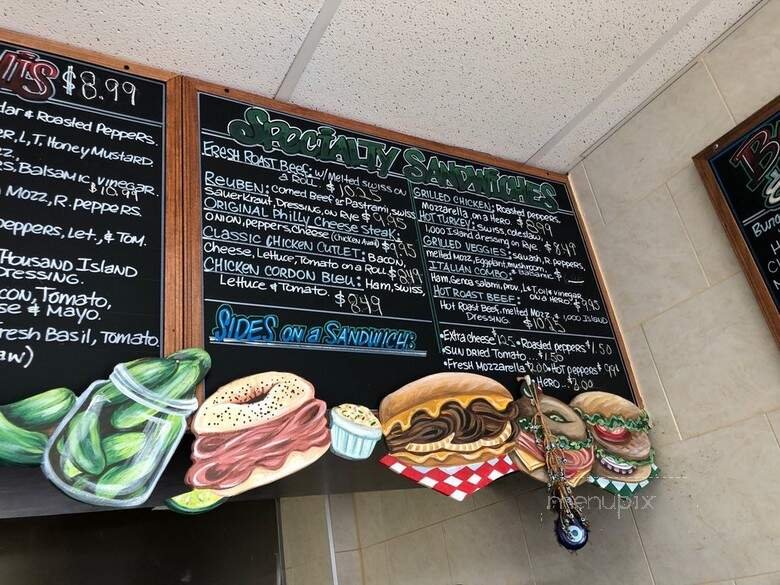 $8.99
& Roasted Peppers.
L,T, Honey Mustard
Balsamic, vinegar.
Mozz, R. peppers
peppers, Let., & Tom.
Thousand Island
Dressing.
Tomato,
& Mayo.
Fresh Basil, Tomato.
Specialty Sandwiches
Fresh Roast Beef: w/ Melted Swiss on
a Roll.
Reuben: corned Beef or Pastrami, swiss
Sauer Kraut, Dressing, on Rye $9.95
Original Philly Cheese steak:
onion, peppers, Cheese
Classic Chicken Cutlet: Bacon,
Cheese, Lettuce, Tomato on a Roll $8.49
Chicken Cordon Bleu: Ham, Swiss,
Lettuce & Tomato. $8.49
Sides on a Sandwich:
Grilled Chicken: Roasted peppers,
Mozzarella, on a Hero. $8.99
Hot Turkey: swiss, coleslaw,
1,000 Island dressing on Rye $8.49
Grilled Veggies: squash, R. peppers,
melted Mozz, Eggplant, mushroom,
Italian Combo: Balsamic
Ham, Genoa salami, prov., L & T, oil & vinegar
on a Hero $9.95
Hot Roast Beef:
Hot Roast Beef, melted Mozz & 1,000 Island
Dressing.
•Extra cheese •Roasted peppers $1.50
•Sun Dried Tomato... $1.50
•Fresh Mozzarella 2.00 •Hot peppers
Hero... $3.00
menupix